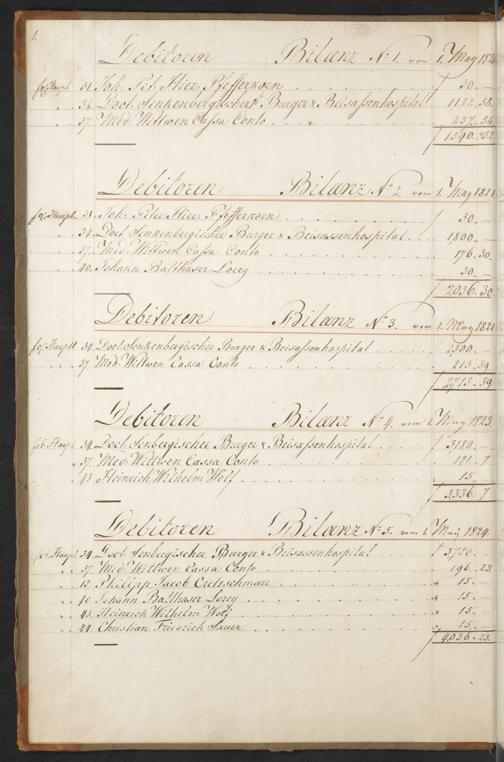 1.
Debitoren Bilanz No 1. vom 1. May 1820
fol. Hauptb. 31. Joh. Petr Hier. Pfefferkorn 30. —
34. Doct. Senkenbergischer Burger & Beisassenhospital 1122. 58.
37. Med. Wittwen Cassa Conto 237. 54.
1390. 52
Debitoren Bilanz No 2. vom 1. May 1821
fol. Hauptb. 31. Joh. Peter Hier. Pfefferkorn 30. —
34. Doct. Senkenbergischer Burger & Beisassenhospital 1800. —
37. Med. Wittwen Cassa Conto 176. 30.
40. Johann Balthaser Lorey 30. —
2036. 30.
Debitoren Bilanz No 3. vom 1. May
fol. Hauptb. 34. Doct. Senkenbergischer Burger & Beisassenhospital 2500. —
37. Med. Wittwen Cassa Conto 213. 39.
2713. 39.
Debitoren Bilanz No 4. vom 1. May 1823.
fol. Haupt. 34. Doct. Senbergischer Burger & Beisassenhospital 3180. —
37. Med. Wittwen Cassa Conto 141. 7
43. Heinrich Wilhelm Wolf 15. —
3336. 7
Debitoren Bilanz No 5. vom 1. May 1824.
fol. Haupt. 34. Doct. Senbergischer Burger & Beisassenhospital 3780. —
37. Med. Wittwen Cassa Conto 196. 23
12. Philipp Jacob Cretzschmar 15. —
40. Johann Balthaser Lorey 15. —
43. Heinrich Wilhelm Wolf 15. —
44. Christian Friedrich Sauer 15. —
4036. 23.